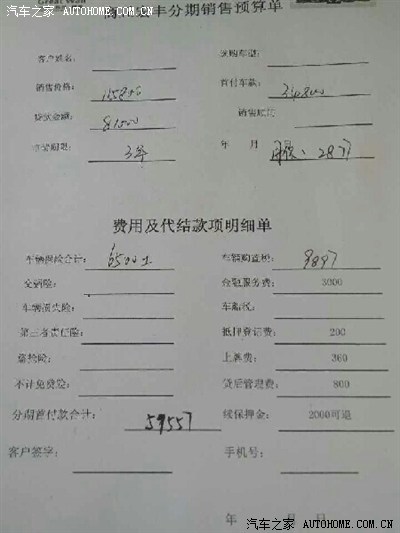 汽车之家 AUTOHOME.COM.CN
丰分期销售预算单
客户姓名:
采购车型:
销售价格: 115800
首付车款:
贷款金额: 81500
销售
3年
年 月
费用及代结款项明细单
车辆保险合计:
车辆购置税: 9897
交强险:
金融服务费: 3000
车辆损失险:
车船税:
第三者责任险:
抵押登记费: 200
盗抢险:
上牌费: 360
不计免赔险:
贷后管理费: 800
分期首付款合计: 59557
续保押金: 2000可退
客户签字:
手机号:
年 月 日
汽车之家 AUTOHOME.COM.CN